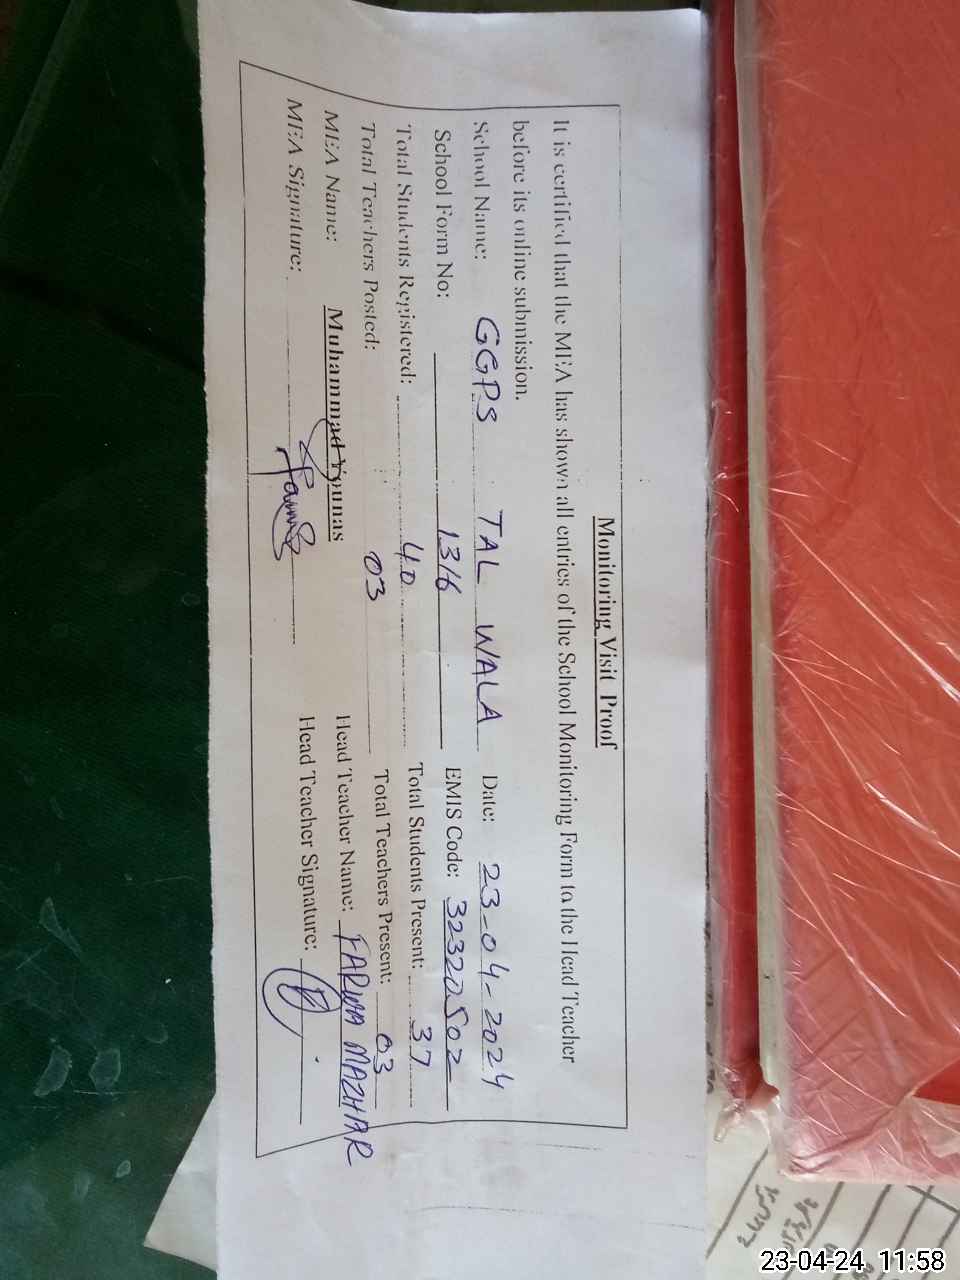 Monitoring Visit Proof
It is certified that the MEA has shown all entries of the School Monitoring Form to the Head Teacher
before its online submission.
School Name: GGPS TAL WALA Date: 23-04-2024
School Form No: 1316 EMIS Code: 32320502
Total Students Registered: 40 Total Students Present: 37
Total Teachers Posted: 03 Total Teachers Present: 03
MEA Name: Muhammad Younas Head Teacher Name: FARWA MAZHAR
MEA Signature: Head Teacher Signature:
23-04-24 11:58